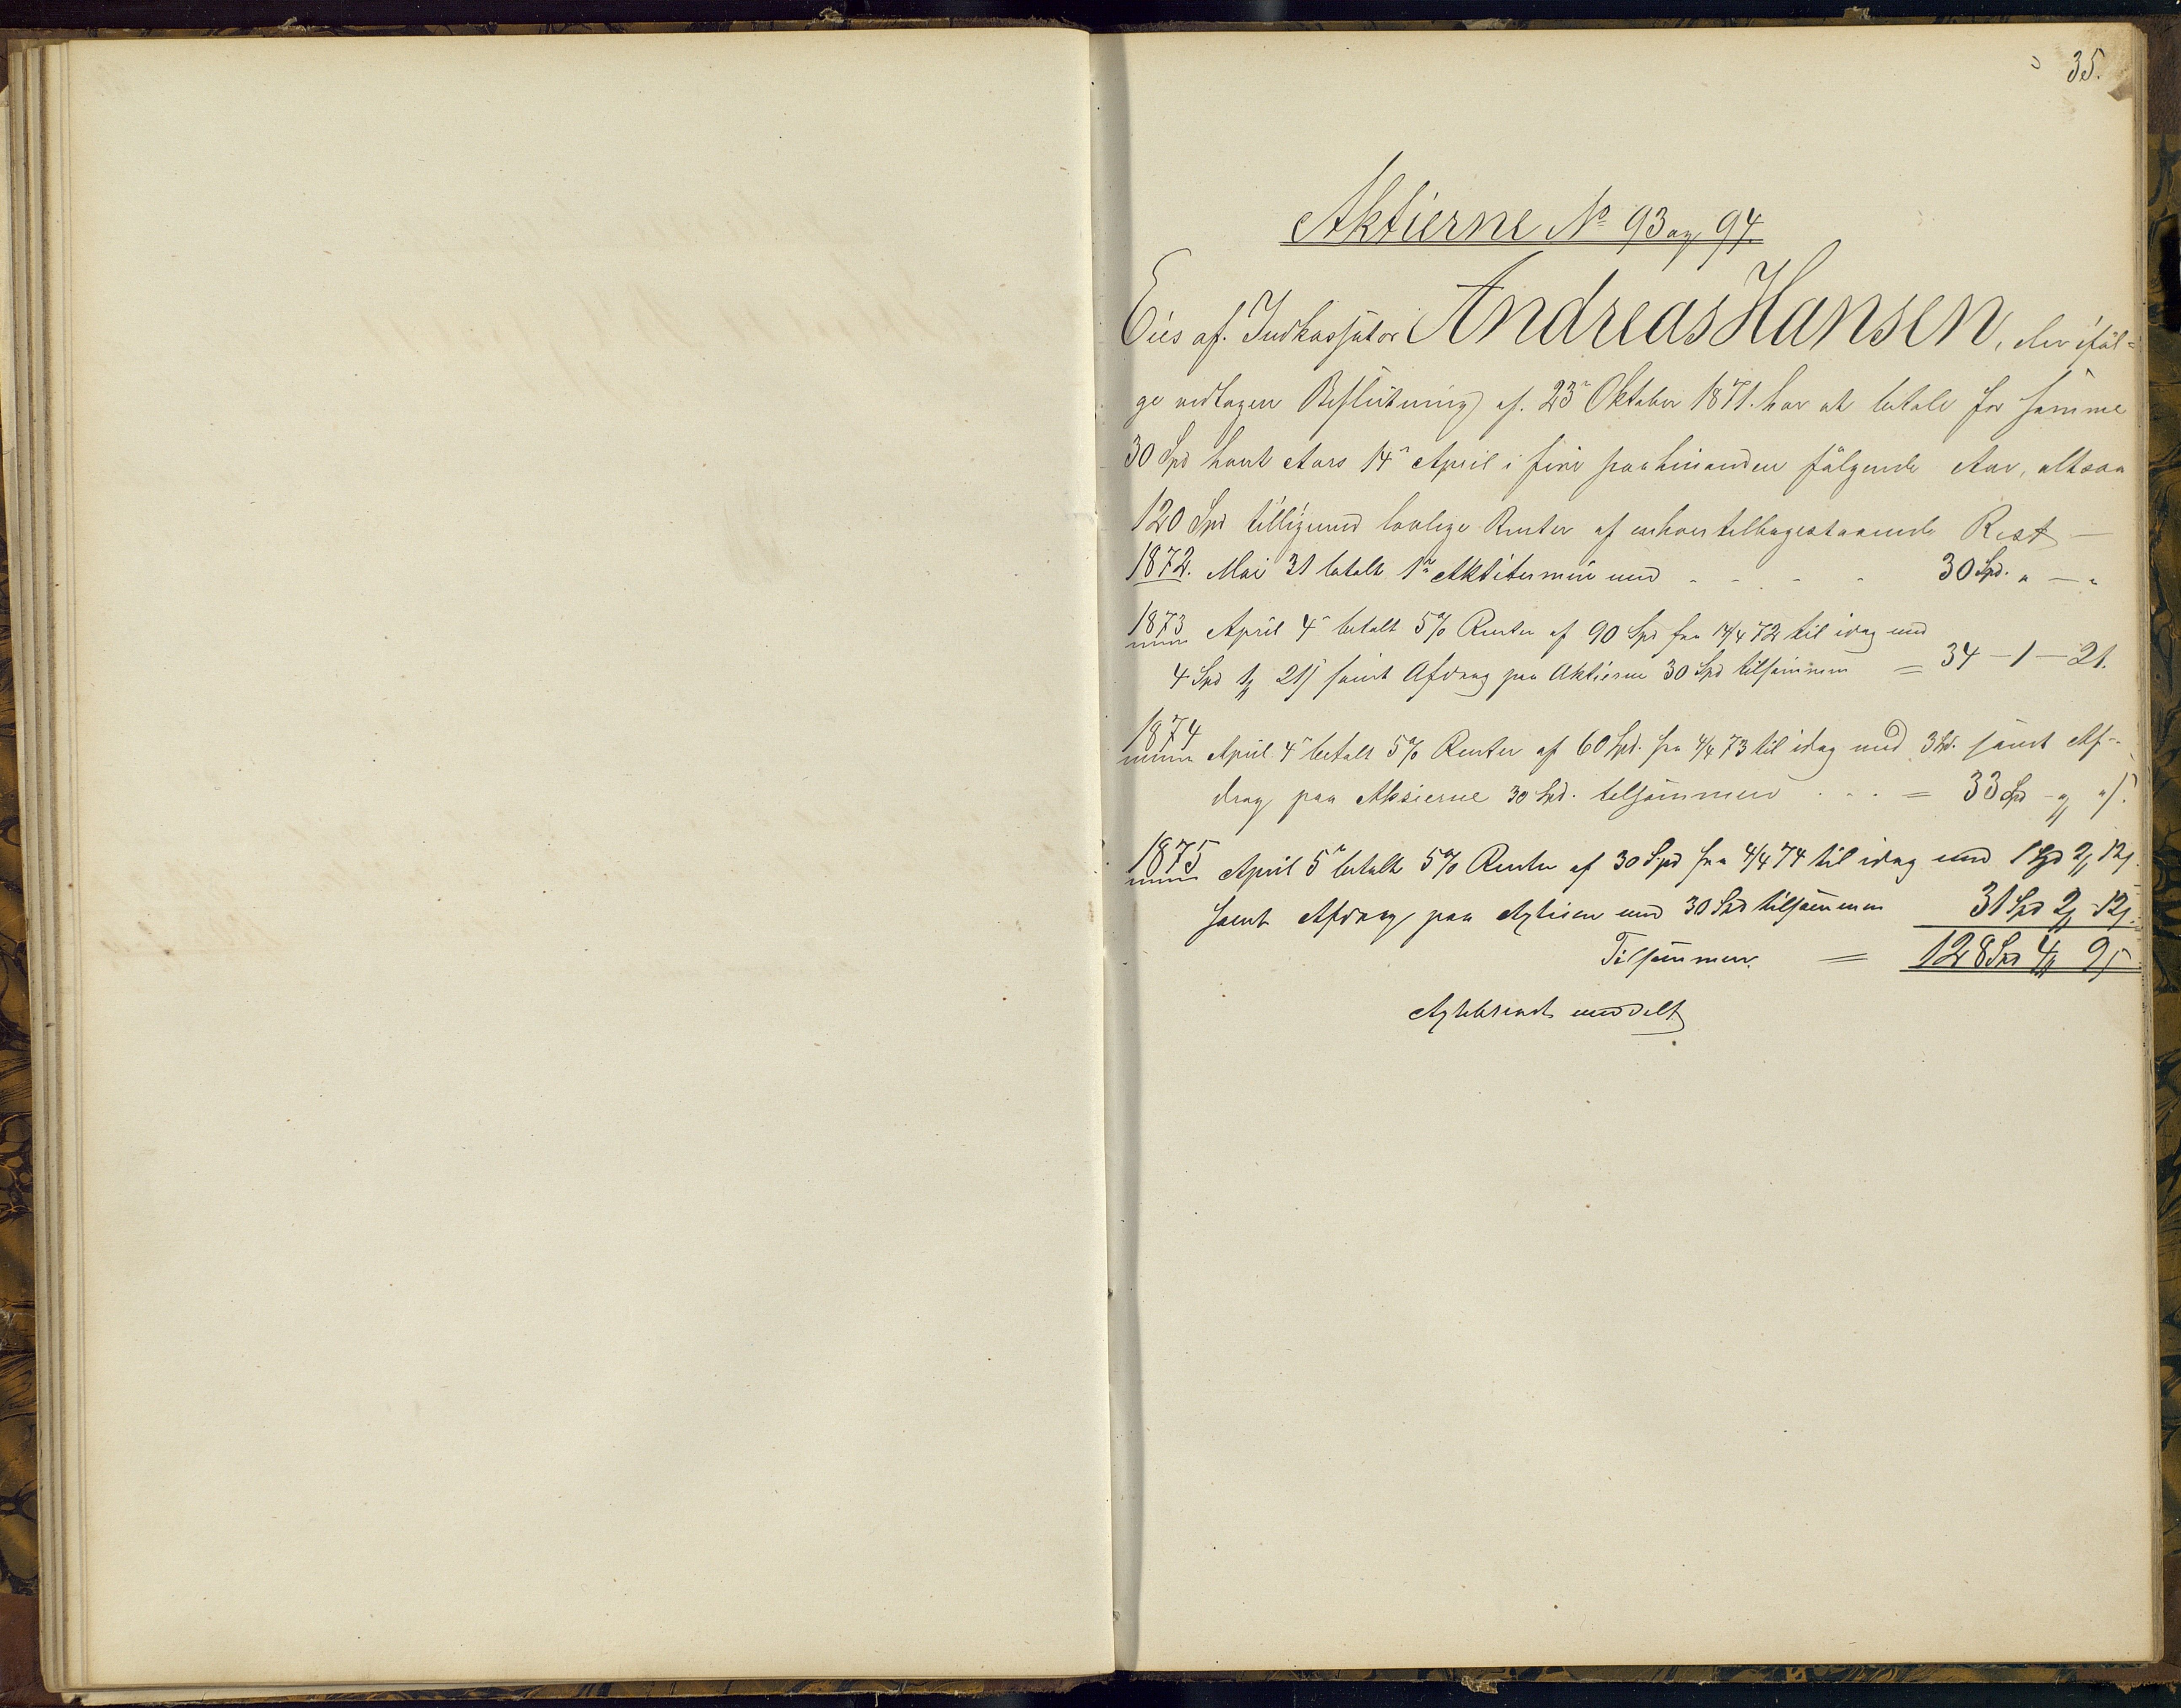 35.
Aktierne No 93 og 94.
Eies af Indkassator Andreas Hansen, der iføl-
ge vedtagen Beslutning af 23' Oktober 1871. har at betale for samme
30 Spd hvert Aars 14' April i fire paahinanden følgende Aar, altsaa
120 Spd tilligemed lovlige Renter af enhver tilbagestaaende Rest —
1872. Mai 31 betalt 1' Aktietermin med - - - - 30 Spd. " — "
1873 April 4' betalt 5% Renter af 90 Spd fra 14/4 72 til idag med
4 Spd 1 21 samt Afdrag paa Aktierne 30 Spd tilsammen = 34 — 1 — 21.
1874 April 4' betalt 5% Renter af 60 Spd. fra 4/4 73 til idag med 3 Spd. samt Af-
drag paa Aksierne 30 Spd. tilsammen . . . = 33 Spd - " "
1875 April 5' betalt 5% Renter af 30 Spd fra 4/4 74 til idag med 1 Spd 2 12
samt Afdrag paa Aktien med 30 Spd tilsammen 31 Spd 2 - 12
Tilsammen = 128 Spd 4 9
meddelt